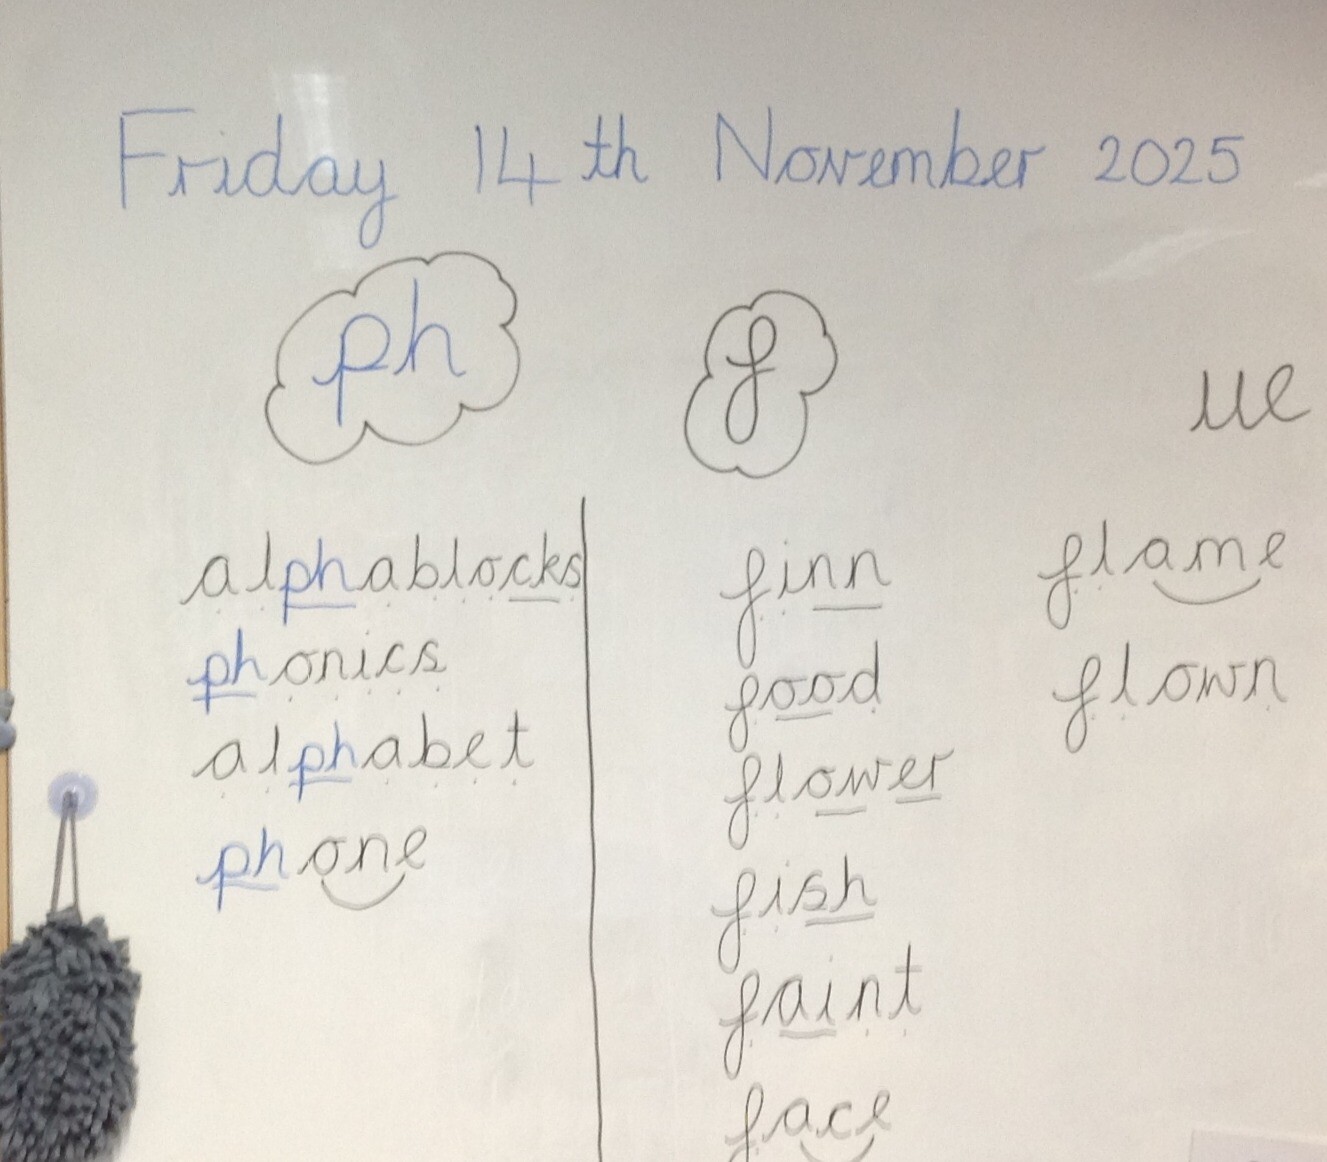 Friday 14th November 2025
ph
f
ue
alphablocks
phonics
alphabet
phone
finn
food
flower
fish
faint
face
flame
flown